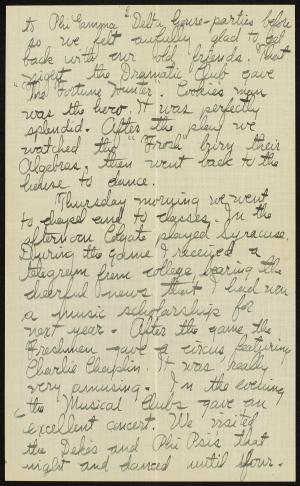 to Phi Gamma Delta house-parties before
so we felt awfully glad to get
back with our old friends. That
night the Dramatic Club gave
"The Fortune Hunter". Cookies man
was the hero. It was perfectly
splendid. After the play we
watched the "Frosh" bury their
Algebras, then went back to the
house to dance.
Thursday morning we went
to chapel and to classes. In the
afternoon Colgate played Syracuse.
During the game I received a
telegram from college bearing the
cheerful news that I had won
a music scholarship for
next year. After the game the
Freshmen gave a circus featuring
Charlie Chaplin. It was really
very amusing. In the evening
the Musical Clubs gave an
excellent concert. We visited
the Dekes and Phi Psis that
night and danced until four.